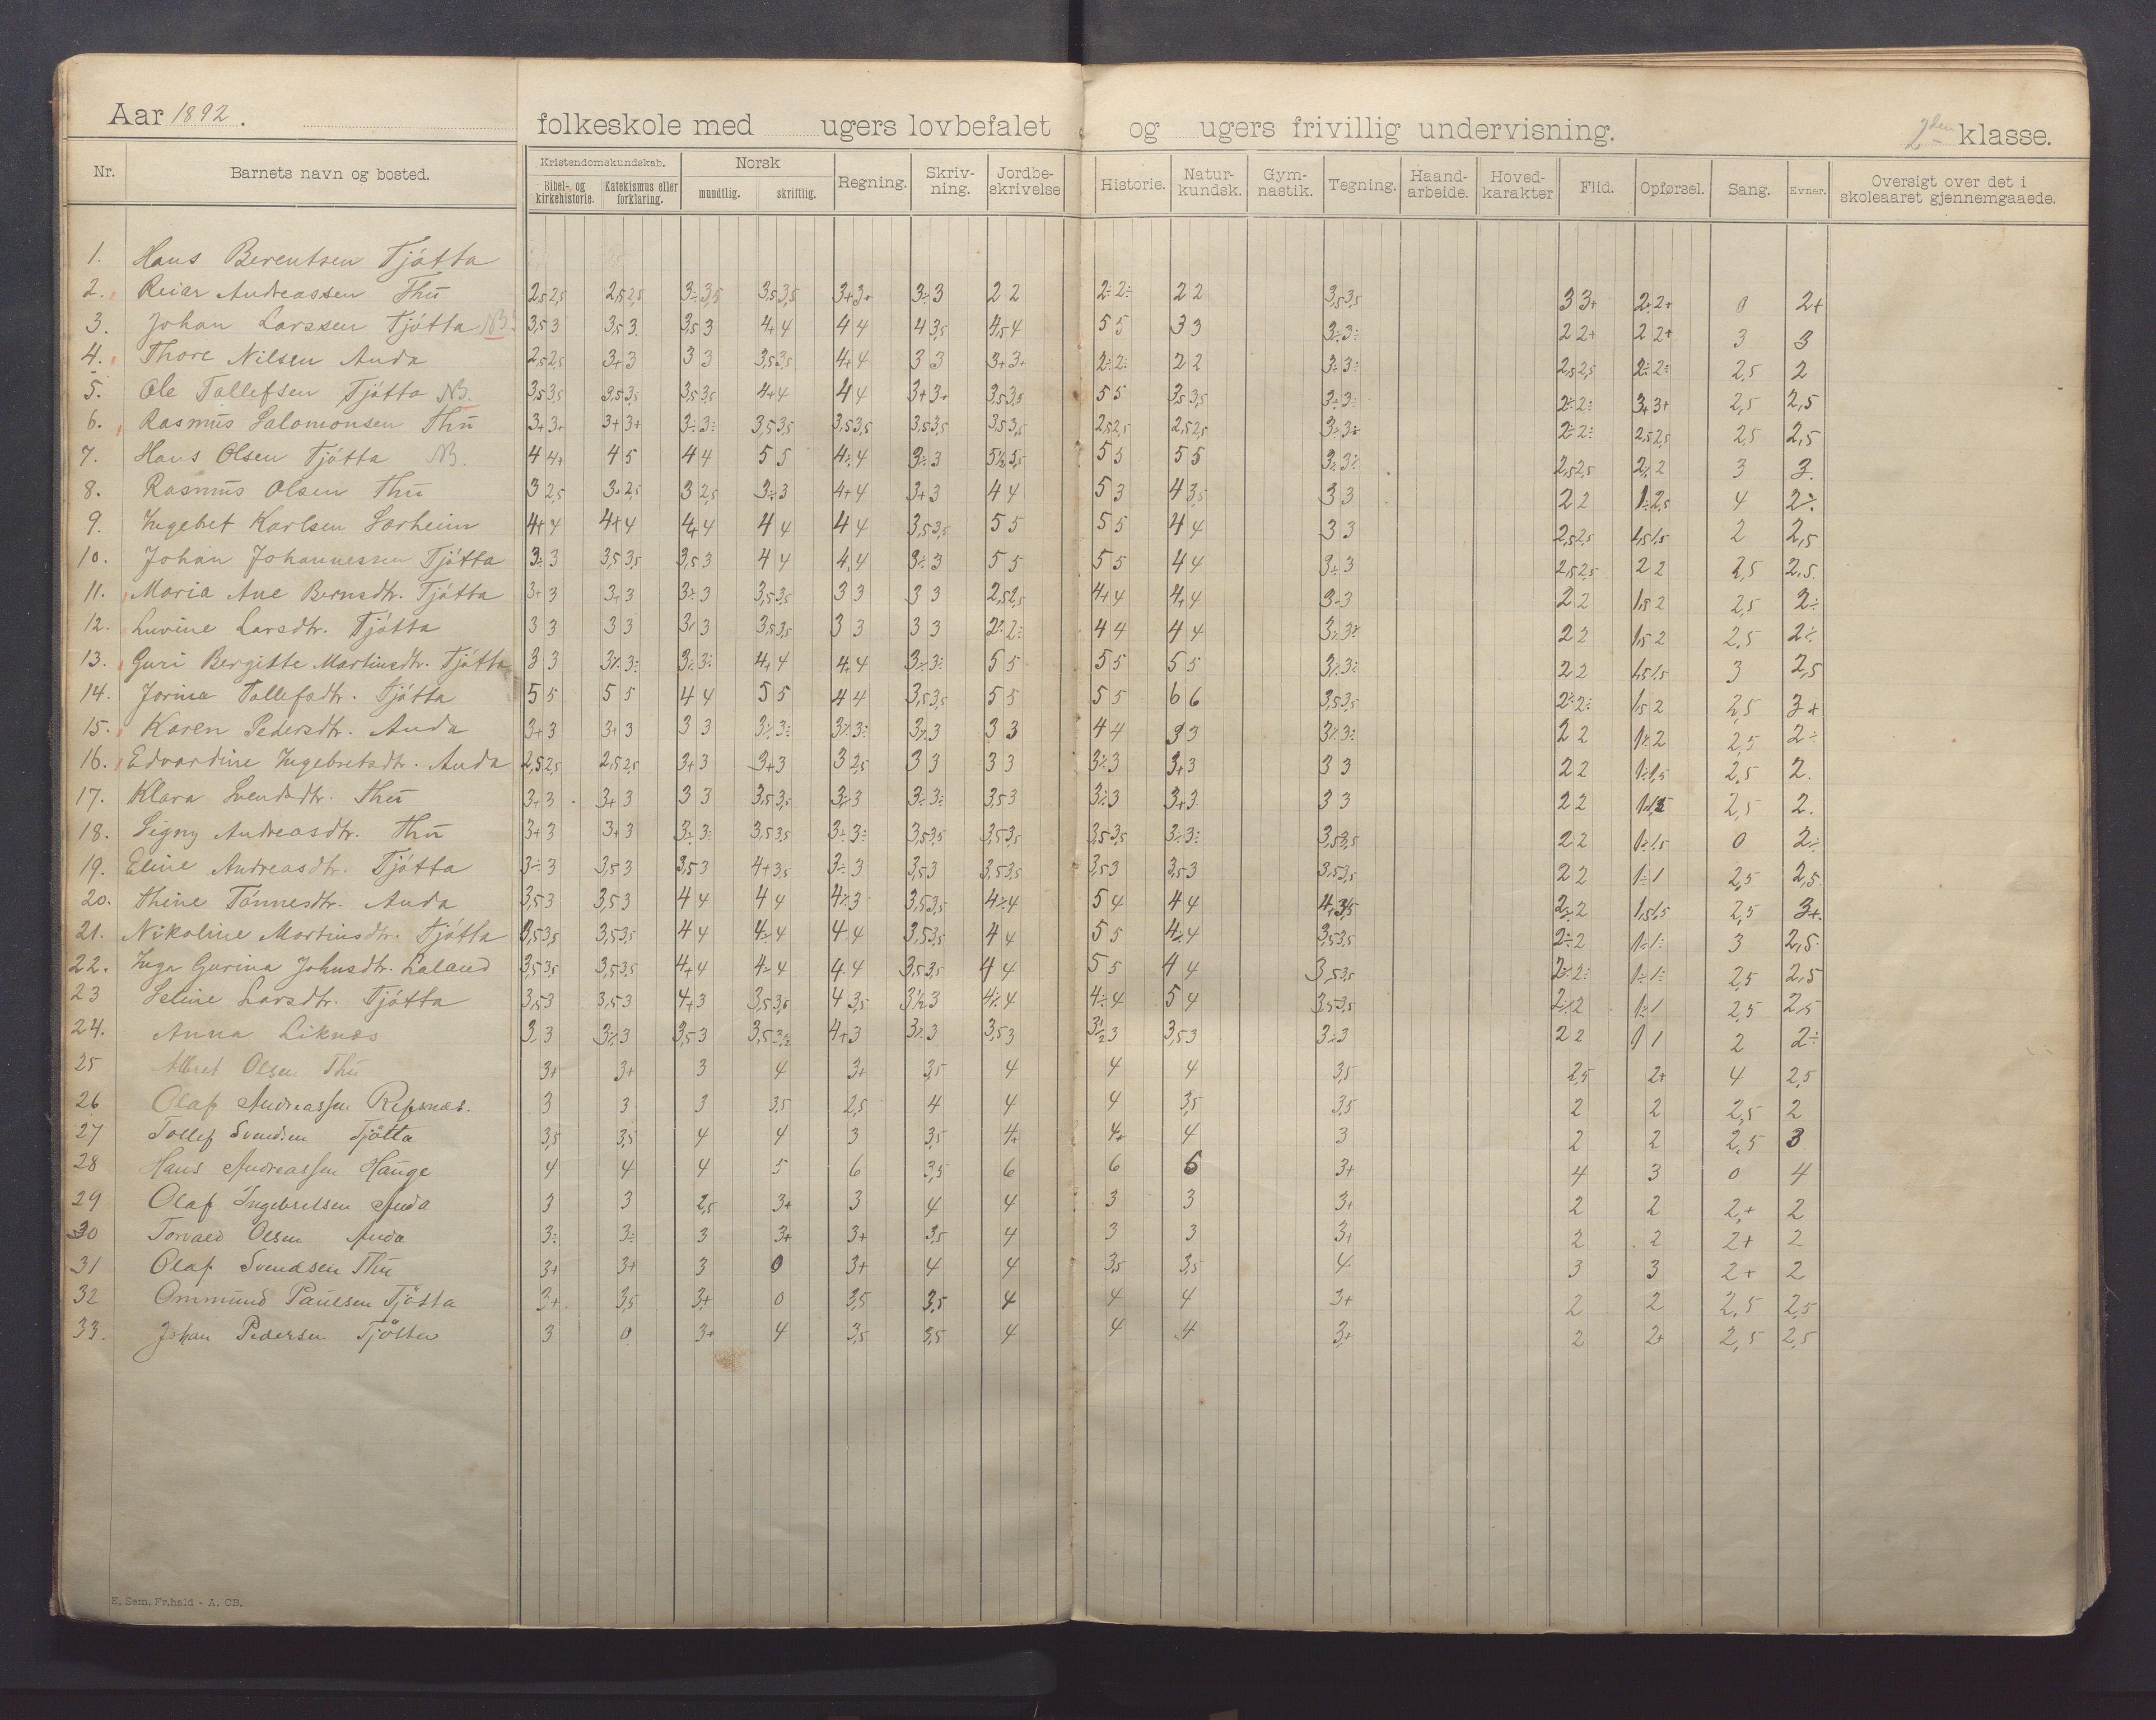 Aar 1892.
folkeskole med ugers lovbefalet og ugers frivillig undervisning.
2den klasse.
Nr. Barnets navn og bosted. Kristendomskundskab. Bibel- og kirkehistorie. Katekismus eller forklaring. Norsk mundtlig. skriftlig. Regning. Skriv-ning. Jordbe-skrivelse Historie. Natur-kundsk. Gym-nastik. Tegning. Haand-arbeide. Hoved-karakter Flid. Opførsel. Sang. Evner. Oversigt over det i skoleaaret gjennemgaaede.
1. Hans Berentsen Tjótta
2. Reiar Andreassen Thu 2,5 2,5 2,5 2,5 3÷ 3,5 3,5 3,5 3+ 3+ 3÷ 3 2 2 2÷ 2÷ 2 2 3,5 3,5 3 3+ 2+ 2+ 0 2+
3. Johan Larssen Tjótta NB. 3,5 3 3,5 3 3,5 3 4+ 4 4 4 4 3,5 4,5 4 5 5 3 3 3÷ 3÷ 2 2+ 2 2+ 3 3
4. Thore Nilsen Anda 2,5 2,5 3+ 3 3 3 3,5 3,5 4+ 4 3 3 3+ 3+ 2÷ 2÷ 2 2 3÷ 3÷ 2,5 2,5 2÷ 2÷ 2,5 2
5. Ole Tollefsen Tjótta NB. 3,5 3,5 3,5 3,5 3,5 3,5 4+ 4 4 4 3+ 3+ 3,5 3,5 5 5 3,5 3,5 3÷ 3÷ 2÷ 2÷ 3+ 3+ 2,5 2,5
6. Rasmus Salomonsen Thu 3+ 3+ 3+ 3+ 3÷ 3÷ 3,5 3,5 3,5 3,5 3,5 3,5 3,5 3,5 2,5 2,5 2,5 2,5 3÷ 3÷ 2÷ 2÷ 2,5 2,5 2,5 2,5
7. Hans Olsen Tjótta NB. 4 4+ 4 5 4 4 5 5 4÷ 4 3÷ 3 5½ 5,5 5 5 5 5 3÷ 3÷ 2,5 2,5 2÷ 2 3 3
8. Rasmus Olsen Thu 3 2,5 3+ 2,5 3 2,5 3÷ 3 4+ 4 3+ 3 4 4 5 3 4 3,5 3 3 2 2 1÷ 2,5 4 2÷
9. Ingebret Karlsen Sørheim 4+ 4 4+ 4 4+ 4 4 4 4 4 3,5 3,5 5 5 5 5 4 4 3 3 2,5 2,5 1,5 1,5 2 2,5
10. Johan Johannesen Tjótta 3÷ 3 3,5 3,5 3,5 3 4 4 4 4 3÷ 3 5 5 5 5 4 4 3÷ 3 2,5 2,5 2 2 2,5 2,5
11. Maria Ane Bernsdtr. Tjótta 3+ 3 3+ 3 3÷ 3 3,5 3,5 3 3 3 3 2,5 2,5 4+ 4 4+ 4 3÷ 3 2 2 1,5 2 2,5 2÷
12. Luvine Larsdtr. Tjótta 3 3 3 3 3÷ 3 3,5 3,5 3 3 3 3 2÷ 2÷ 4 4 4 4 3÷ 3÷ 2 2 1,5 2 2,5 2÷
13. Guri Bergitte Martinsdtr. Tjótta 3 3 3÷ 3÷ 3÷ 3÷ 4+ 4 4 4 3÷ 3÷ 5 5 5 5 5 5 3÷ 3÷ 2 2 1,5 1,5 3 2,5
14. Jorina Tollefsdtr. Tjótta 5 5 5 5 4 4 5 5 4 4 3,5 3,5 5 5 5 5 6 6 3,5 3,5 2÷ 2÷ 1,5 2 2,5 3+
15. Karen Pedersdtr. Anda 3+ 3 3+ 3 3 3 3÷ 3÷ 3÷ 3÷ 3÷ 3 3 3 4 4 3 3 3÷ 3÷ 2 2 1÷ 2 2,5 2÷
16. Edvardine Ingebretsdtr. Anda 2,5 2,5 2,5 2,5 3+ 3 3+ 3 3 2,5 3 3 3 3 3÷ 3 3+ 3 3 3 2 2 1÷ 1,5 2,5 2.
17. Klara Svendsdtr. Thu 3+ 3 3+ 3 3 3 3,5 3,5 3÷ 3 3÷ 3÷ 3,5 3 3÷ 3 3+ 3 3 3 2 2 2,5 2.
18. Signy Andreasdtr. Thu 3+ 3 3+ 3 3÷ 3÷ 3,5 3,5 3÷ 3÷ 3,5 3,5 3,5 3,5 3,5 3,5 3÷ 3÷ 3,5 3,5 2 2 1÷ 1,5 0 2÷
19. Eline Andreasdtr. Tjótta 3÷ 3 3,5 3 3,5 3 4+ 3,5 3÷ 3 3,5 3 3,5 3,5 3,5 3 3,5 3 3,5 3,5 2 2 1÷ 1 2,5 2,5
20. Thine Tønnesdtr. Anda 3,5 3 3,5 3 4 4 4 4 4÷ 3 3,5 3,5 4÷ 4 5 4 4 4 4+ 3,5 2÷ 2 1,5 1,5 2,5 3+
21. Nikoline Martinsdtr. Tjótta 3,5 3,5 3,5 3,5 4 4 4÷ 4 4 4 3,5 3,5 4 4 5 5 4÷ 4 3,5 3,5 2÷ 2 1÷ 1÷ 3 2,5
22. Inga Gurina Johnsdtr. Laland 3,5 3,5 3,5 3,5 4+ 4 4÷ 4 4 4 3,5 3,5 4 4 5 5 4 4 3,5 3,5 2÷ 2÷ 1÷ 1÷ 2,5 2,5
23 Seline Larsdtr. Tjótta 3,5 3 3,5 3 4+ 3 3,5 3,5 4 3,5 3½ 3 4÷ 4 4÷ 4 5 4 3,5 3,5 2÷ 2 1÷ 1 2,5 2,5
24. Anna Liknæs 3÷ 3 3÷ 3 3,5 3 3,5 3½ 4+ 3 3÷ 3 3,5 3 3½ 3 3,5 3 3÷ 3 2 2 1 2 2÷
25 Albret Olsen Thu 3+ 3+ 3 4 3+ 3,5 4 4 4 3,5 2,5 2+ 4 2,5
26 Olaf Andreassen Refsnes. 3 3 3 3,5 2,5 4 4 4 3,5 3,5 2 2 2,5 2
27 Tollef Svendsen Tjøtta 3,5 3,5 4 4 3 3,5 4+ 4+ 4 3 2 2 2,5 3
28 Hans Andreassen Hauge 4 4 4 5 6 3,5 6 6 5 3+ 4 3 0 4
29 Olaf Ingebretsen Anda 3 3 2,5 3+ 3 4 4 3 3 3+ 2 2 2+ 2
30 Torvald Olsen Anda 3÷ 3÷ 3 3+ 3+ 3,5 4 3 3 3+ 2 2 2+ 2
31 Olaf Svendsen Thu 3+ 3+ 3 0 3+ 4 4 3,5 3,5 4 3 3 2+ 2
32 Ommund Paulsen Tjøtta 3+ 3,5 3+ 0 3,5 3,5 4 4 4 3+ 2 2 2,5 2,5
33. Johan Pedersen Tjøtta 3 0 3+ 4 3,5 3,5 4 4 4 3+ 2 2+ 2,5 2,5
E. Sem. Fr.hald - A. CB.